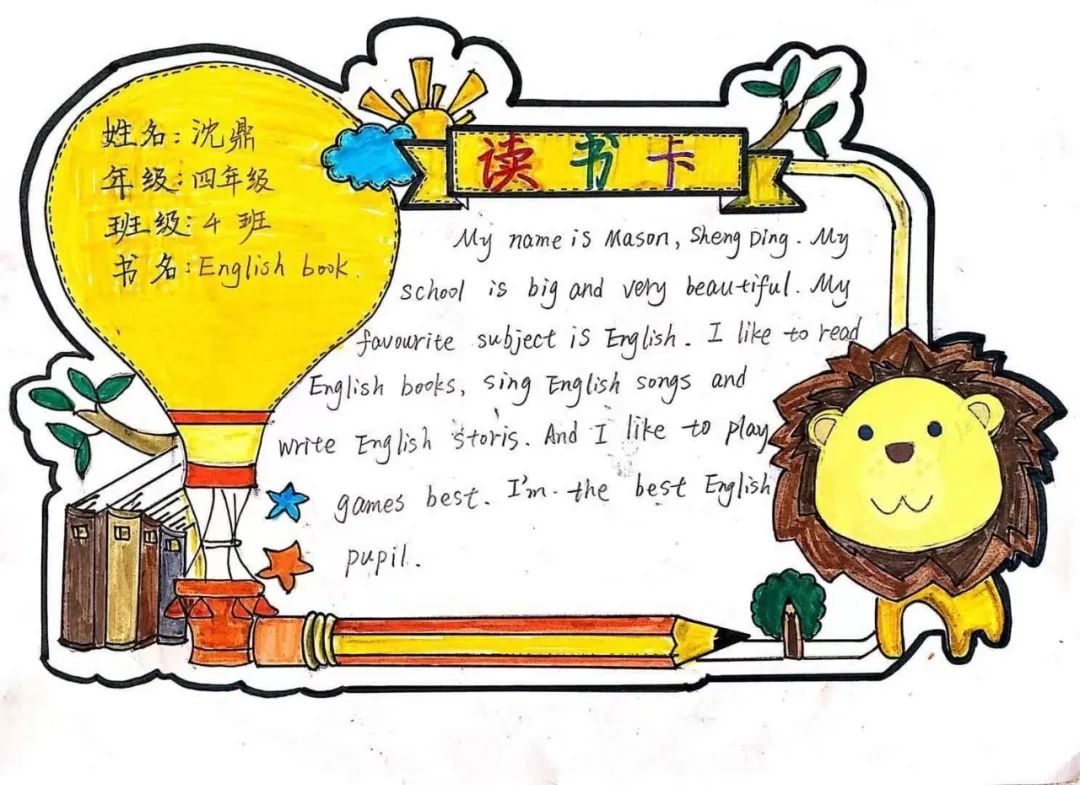 读书卡
姓名:沈鼎
年级:四年级
班级:4班
书名:English book.
My name is Mason, Sheng Ding. My
school is big and very beautiful. My
favourite subject is English. I like to read
English books, sing English songs and
write English storis. And I like to play
games best. I'm the best English
pupil.